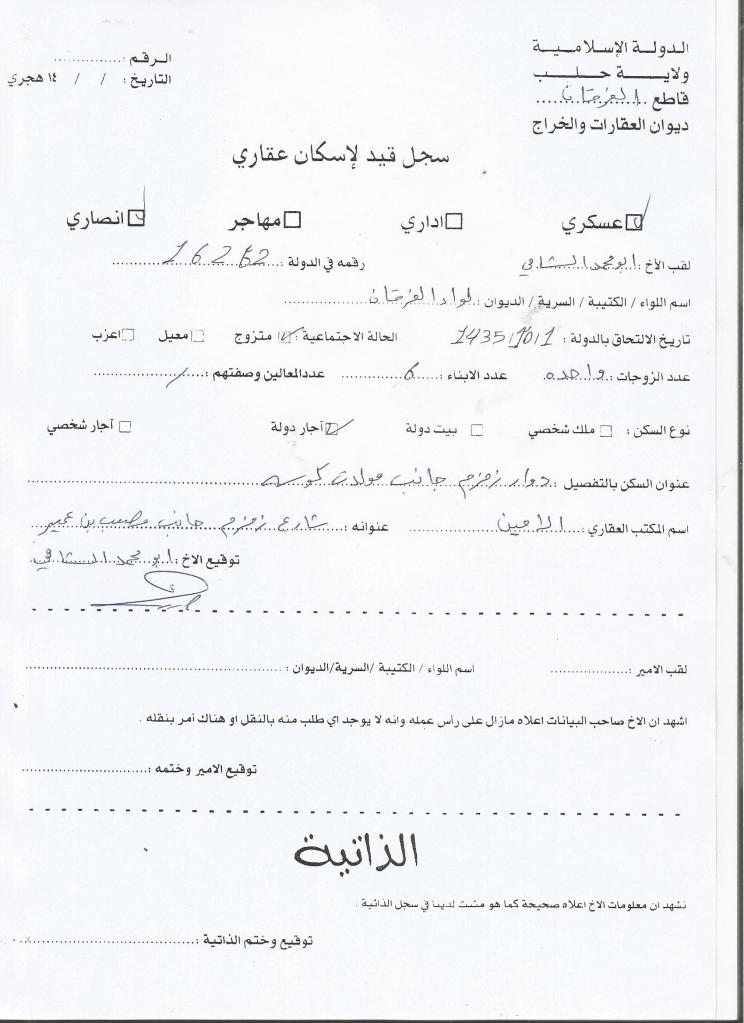 الدولـة الإسلاميـة
ولايـــة حلـــب
قاطع الفرقان
ديوان العقارات والخراج
الـرقـم :
التاريخ : / / ١٤ هجري
سجل قيد لإسكان عقاري
عسكري اداري مهاجر انصاري
لقب الأخ : ابو محمد الشافي رقمه في الدولة : 16262
اسم اللواء / الكتيبة / السرية / الديوان : لواء الفرقان
تاريخ الالتحاق بالدولة : 1435/10/1 الحالة الاجتماعية : متزوج معيل اعزب
عدد الزوجات : واحده عدد الابناء : 6 عدد المعالين وصفتهم : /
نوع السكن : ملك شخصي بيت دولة آجار دولة آجار شخصي
عنوان السكن بالتفصيل : دوار زمزم جانب مولدت
اسم المكتب العقاري : الامين عنوانه : شارع زمزم جانب مصعب بن عمير
توقيع الاخ : ابو محمد الشافي
لقب الامير : اسم اللواء / الكتيبة /السرية/الديوان :
اشهد ان الاخ صاحب البيانات اعلاه مازال على رأس عمله وانه لا يوجد اي طلب منه بالنقل او هناك أمر بنقله .
توقيع الامير وختمه :
الذاتية
نشهد ان معلومات الاخ اعلاه صحيحة كما هو مثبت لدينا في سجل الذاتية .
توقيع وختم الذاتية :